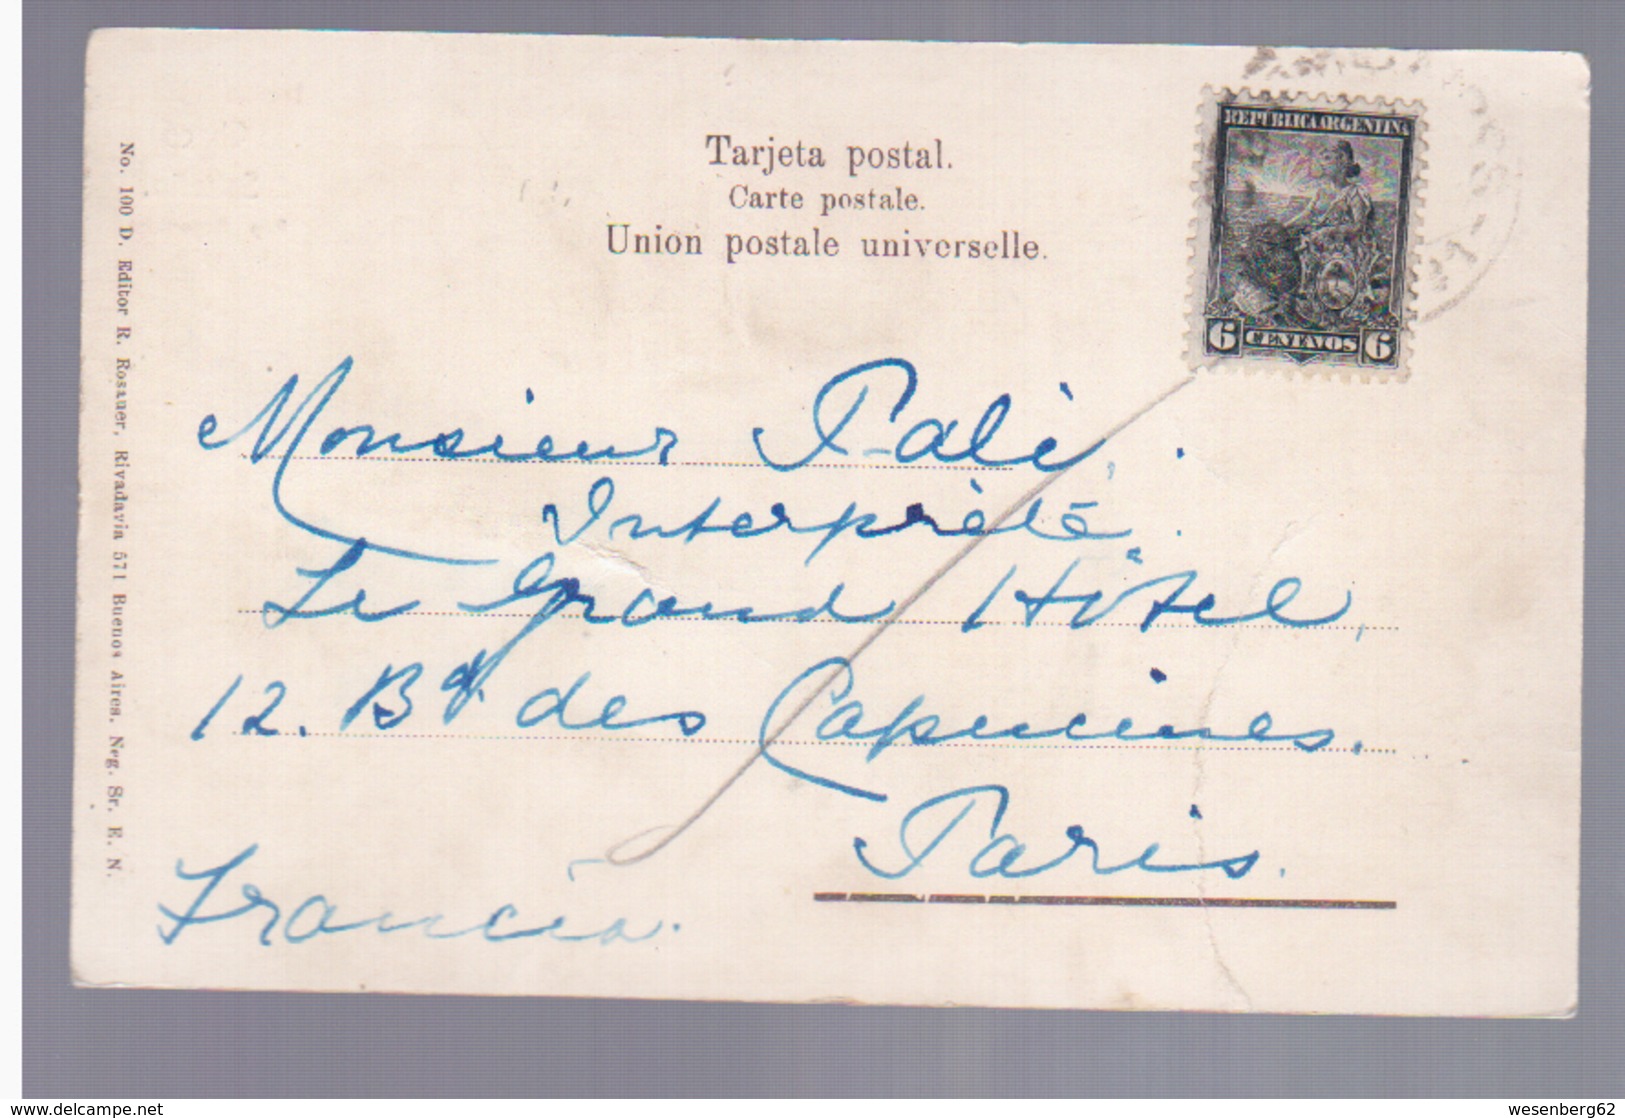 Tarjeta postal.
Carte postale.
Union postale universelle.
REPUBLICA ARGENTINA
6 CENTAVOS 6
No. 100 D. Editor R. Rosauer, Rivadavia 571 Buenos Aires. Neg. Sr. E. N.
Monsieur Fali,
Interprète.
Le Grand Hôtel,
12. Bd. des Capucines.
Paris.
Francia.
www.delcampe.net
wesenberg62